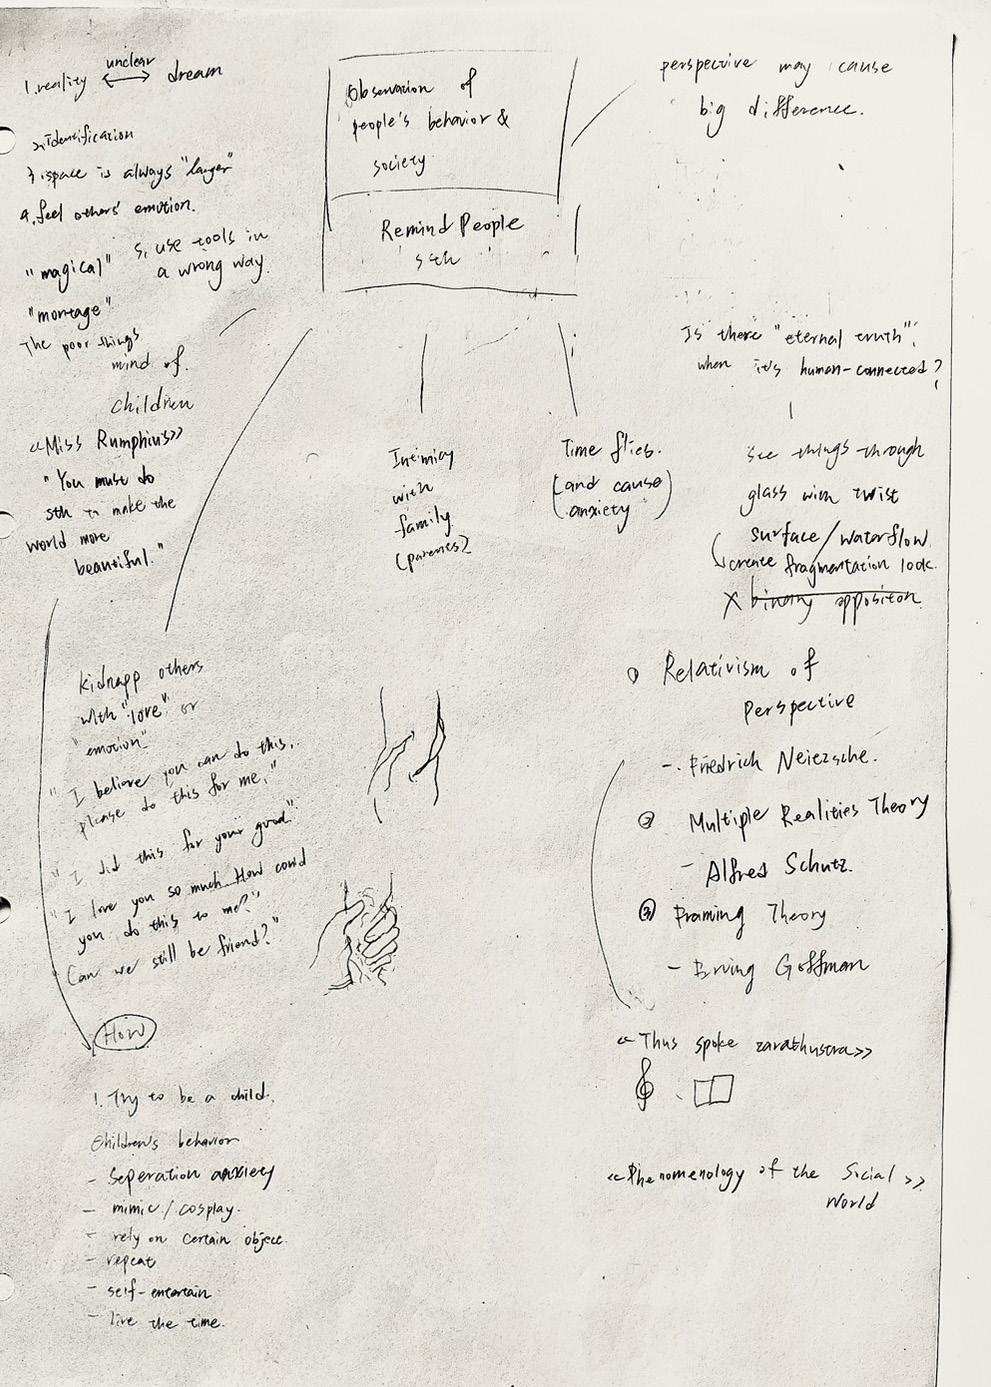 unclear
1. reality ⟷ dream
2. Identification
3. space is always "larger"
4. feel others' emotion.
5. use tools in
a wrong way.
"magical"
"montage"
The poor things
mind of.
children
<<Miss Rumphius>>
"You must do
sth to make the
world more
beautiful."
Observation of
people's behavior &
society
Remind People
sth
perspective may cause
big difference.
Intimicy
with
family
(parents)
Time flies.
(and cause
anxiety)
Is there "eternal truth".
when it's human-connected?
see things through
glass with twist
surface/waterflow.
create fragmentation look.
X binary oppositon
kidnapp others
with "love" or
"emotion"
"I believe you can do this,
please do this for me."
"I did this for your good"
"I love you so much. How could
you do this to me?"
"Can we still be friend?"
How
1. Try to be a child.
Children's behavior
- Seperation anxiety
- mimic/cosplay.
- rely on certain object.
- repeat
- self-entertain
- live the time.
① Relativism of
Perspective
- Friedrich Neiezsche.
② Multiple Realities Theory
- Alfred Schutz.
③ Framing Theory
- Erving Goffman
<<Thus spoke zarathustra>>
<<Phenomenology of the Social
World>>